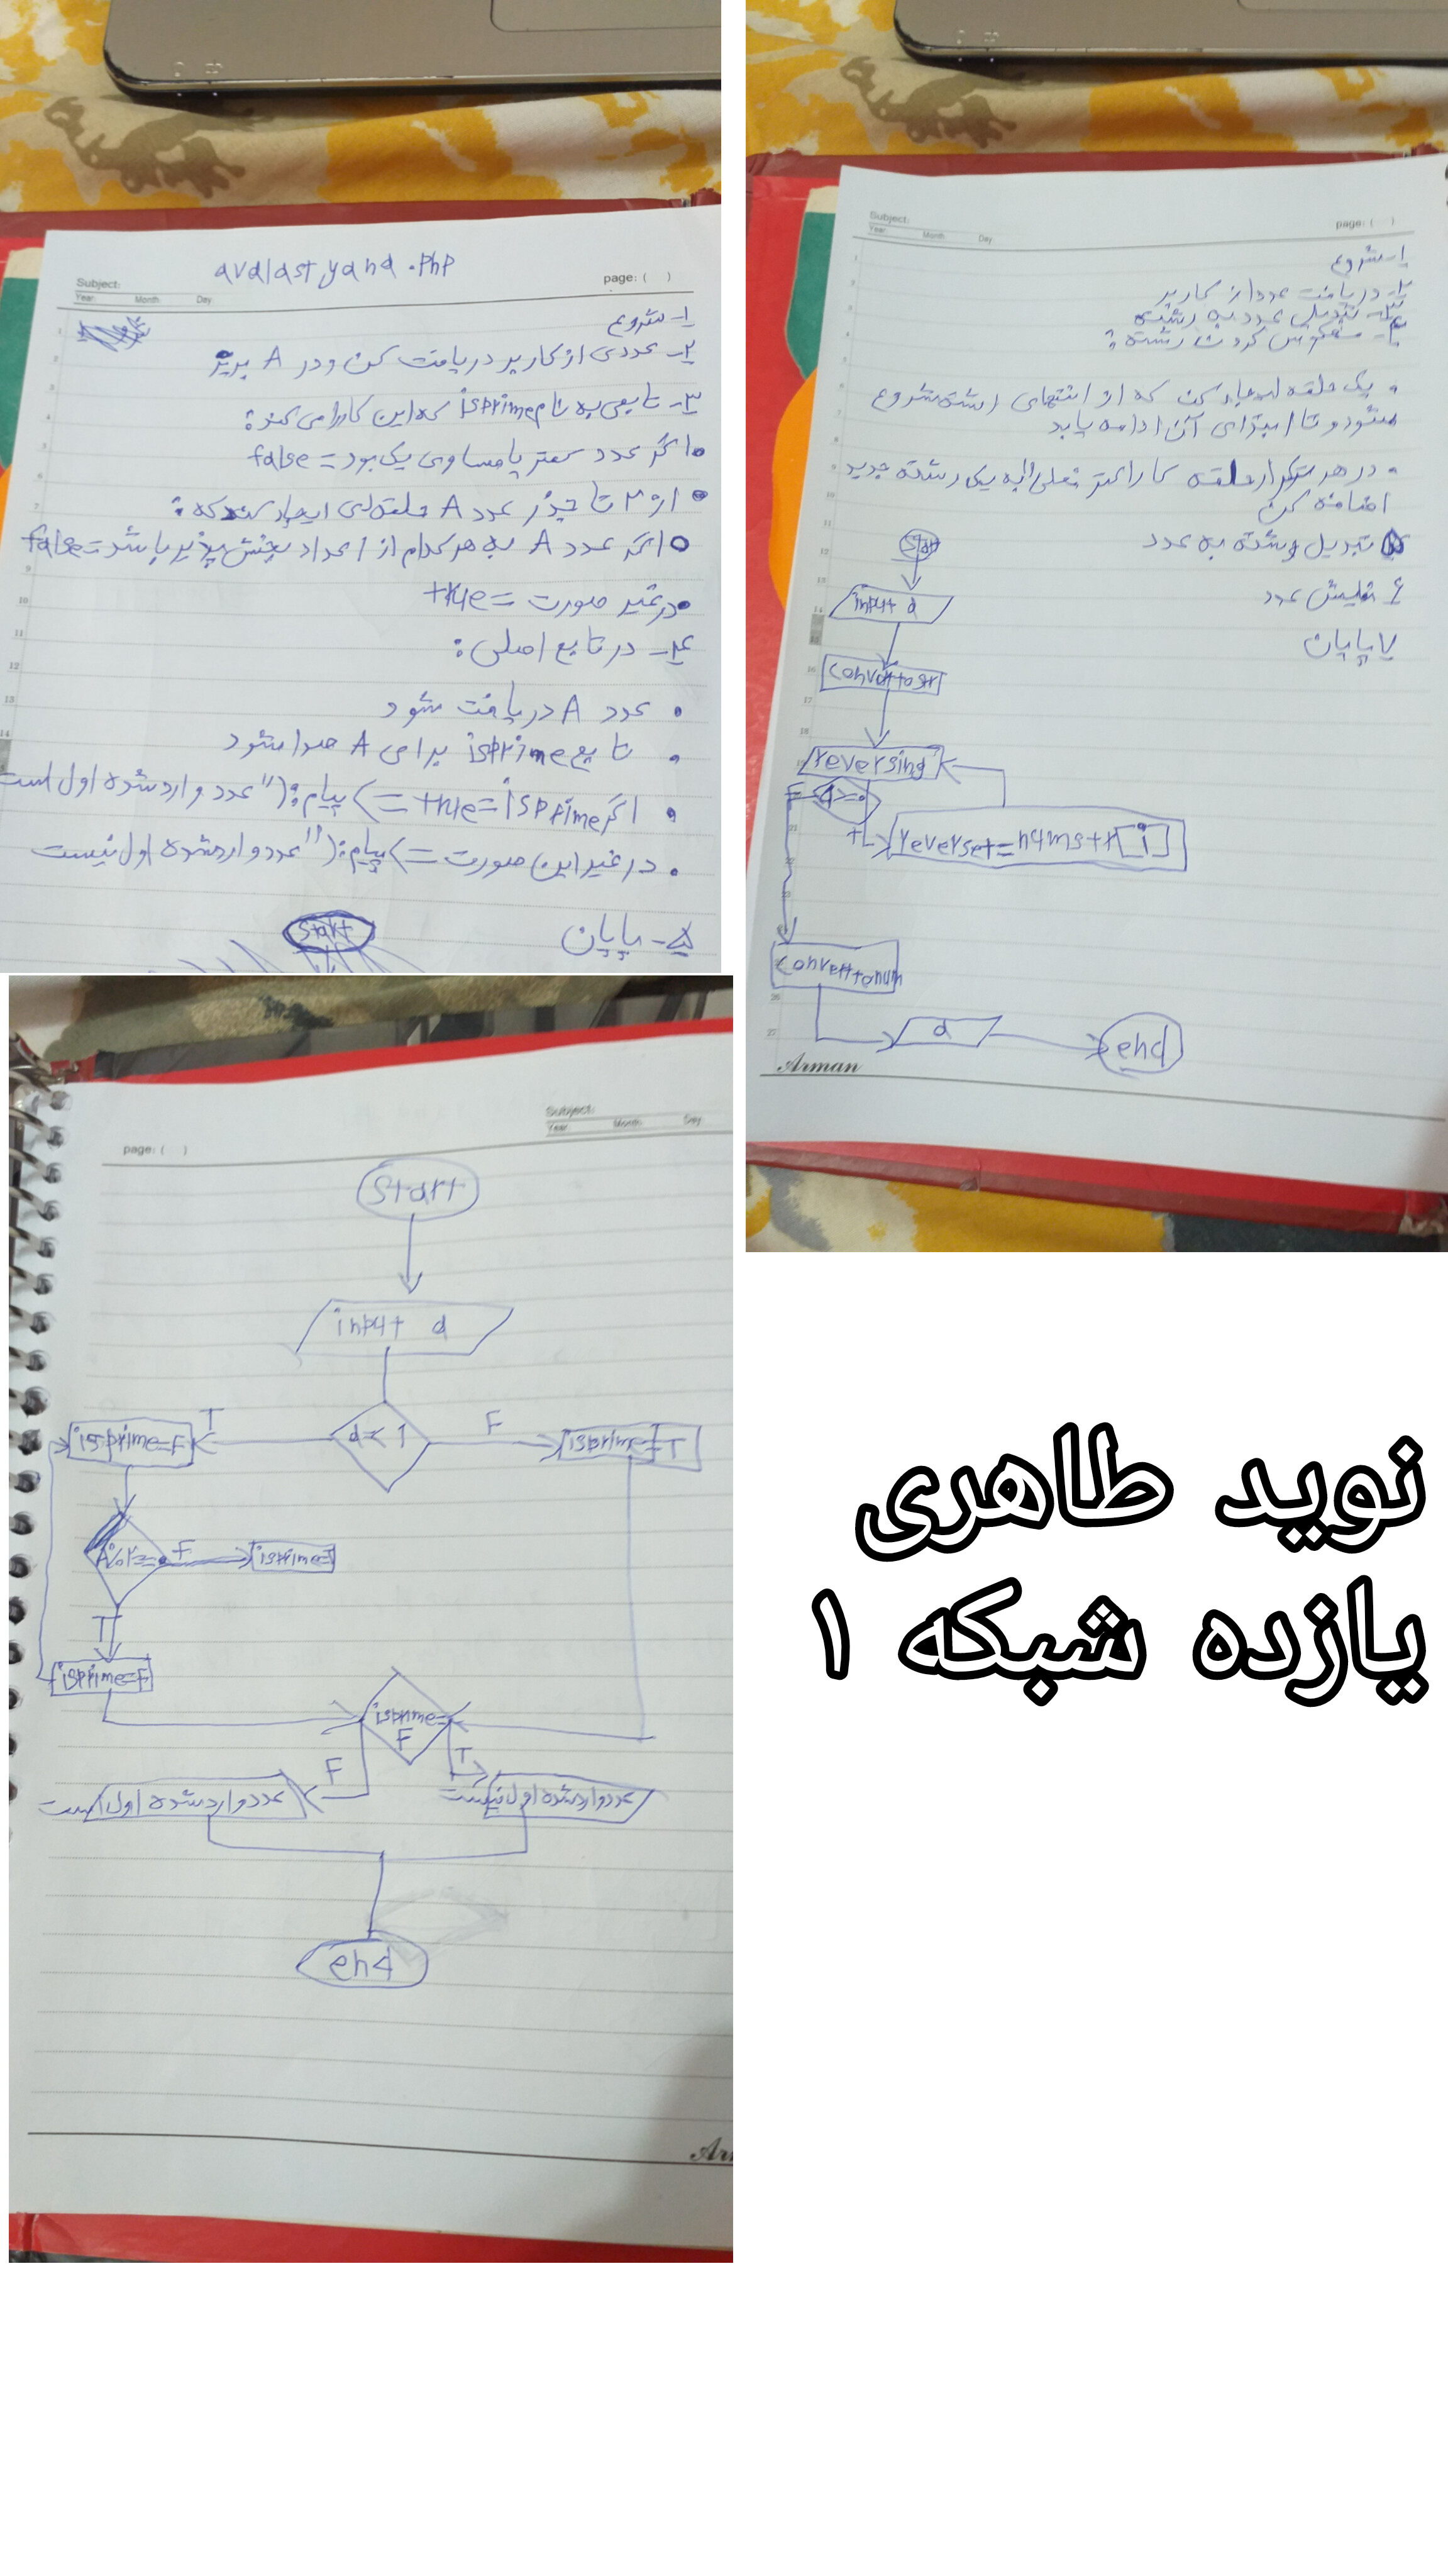 avalastyana.php
Subject:
Year: Month: Day:
page: ( )
۱- شروع
۲- عددی از کاربر دریافت کن و در A بریز
۳- تابعی به نام isprime که این کار را می کند:
اگر عدد کمتر یا مساوی یک بود = false
از ۲ تا جذر عدد A حلقه ای ایجاد کند که:
اگر عدد A به هر کدام از اعداد بخش پذیر باشد = false
در غیر صورت = true
۴- در تابع اصلی:
عدد A دریافت شود
تابع isprime برای A صدا شود
اگر isprime = true => پیام: ("عدد وارد شده اول است
در غیر این صورت => پیام: ("عدد وارد شده اول نیست
۵- پایان
start
Subject:
Year: Month: Day:
page: ( )
۱- شروع
۲- دریافت عدد از کاربر
۳- تبدیل عدد به رشته
۴- معکوس کردن رشته:
یک حلقه ایجاد کن که از انتهای رشته شروع
میشود و تا ابتدای آن ادامه یابد
در هر تکرار حلقه کاراکتر فعلی را به یک رشته جدید
اضافه کن
۵ تبدیل رشته به عدد
۶ نمایش عدد
۷ پایان
Start
input a
convertostr
reversing
F
reverset=numstr[i]
converttonum
a
end
Arman
Subject:
Year: Month: Day:
page: ( )
start
input a
a< 1
T
F
isprime=F
isprime=T
A%2==0
F
isprime=T
T
isprime=F
isprime=
F
F
T
عدد وارد شده اول است
عدد وارد شده اول نیست
end
نوید طاهری
یازده شبکه ۱